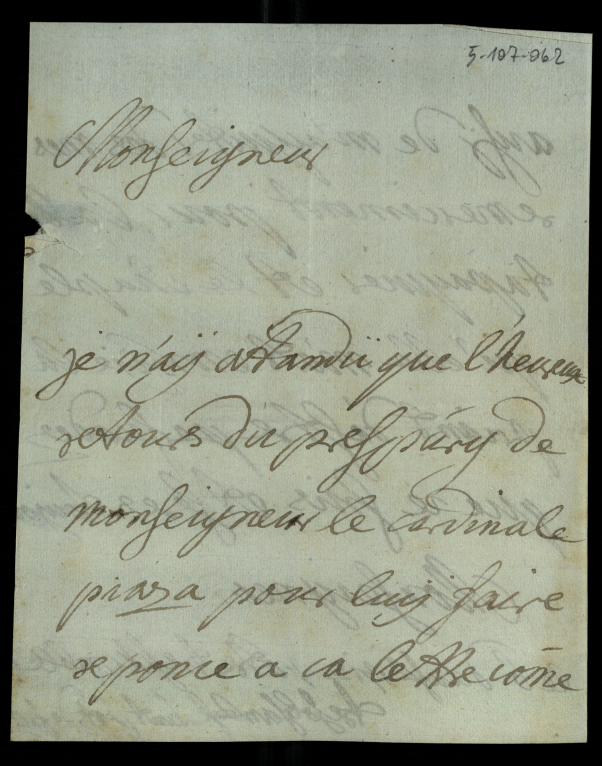 5-107-062
Monseigneur
je n'aÿ atandu que l'heureux
retour du de
monseigneur le cardinale
piaza pour luy faire
reponce a ca lettre côme